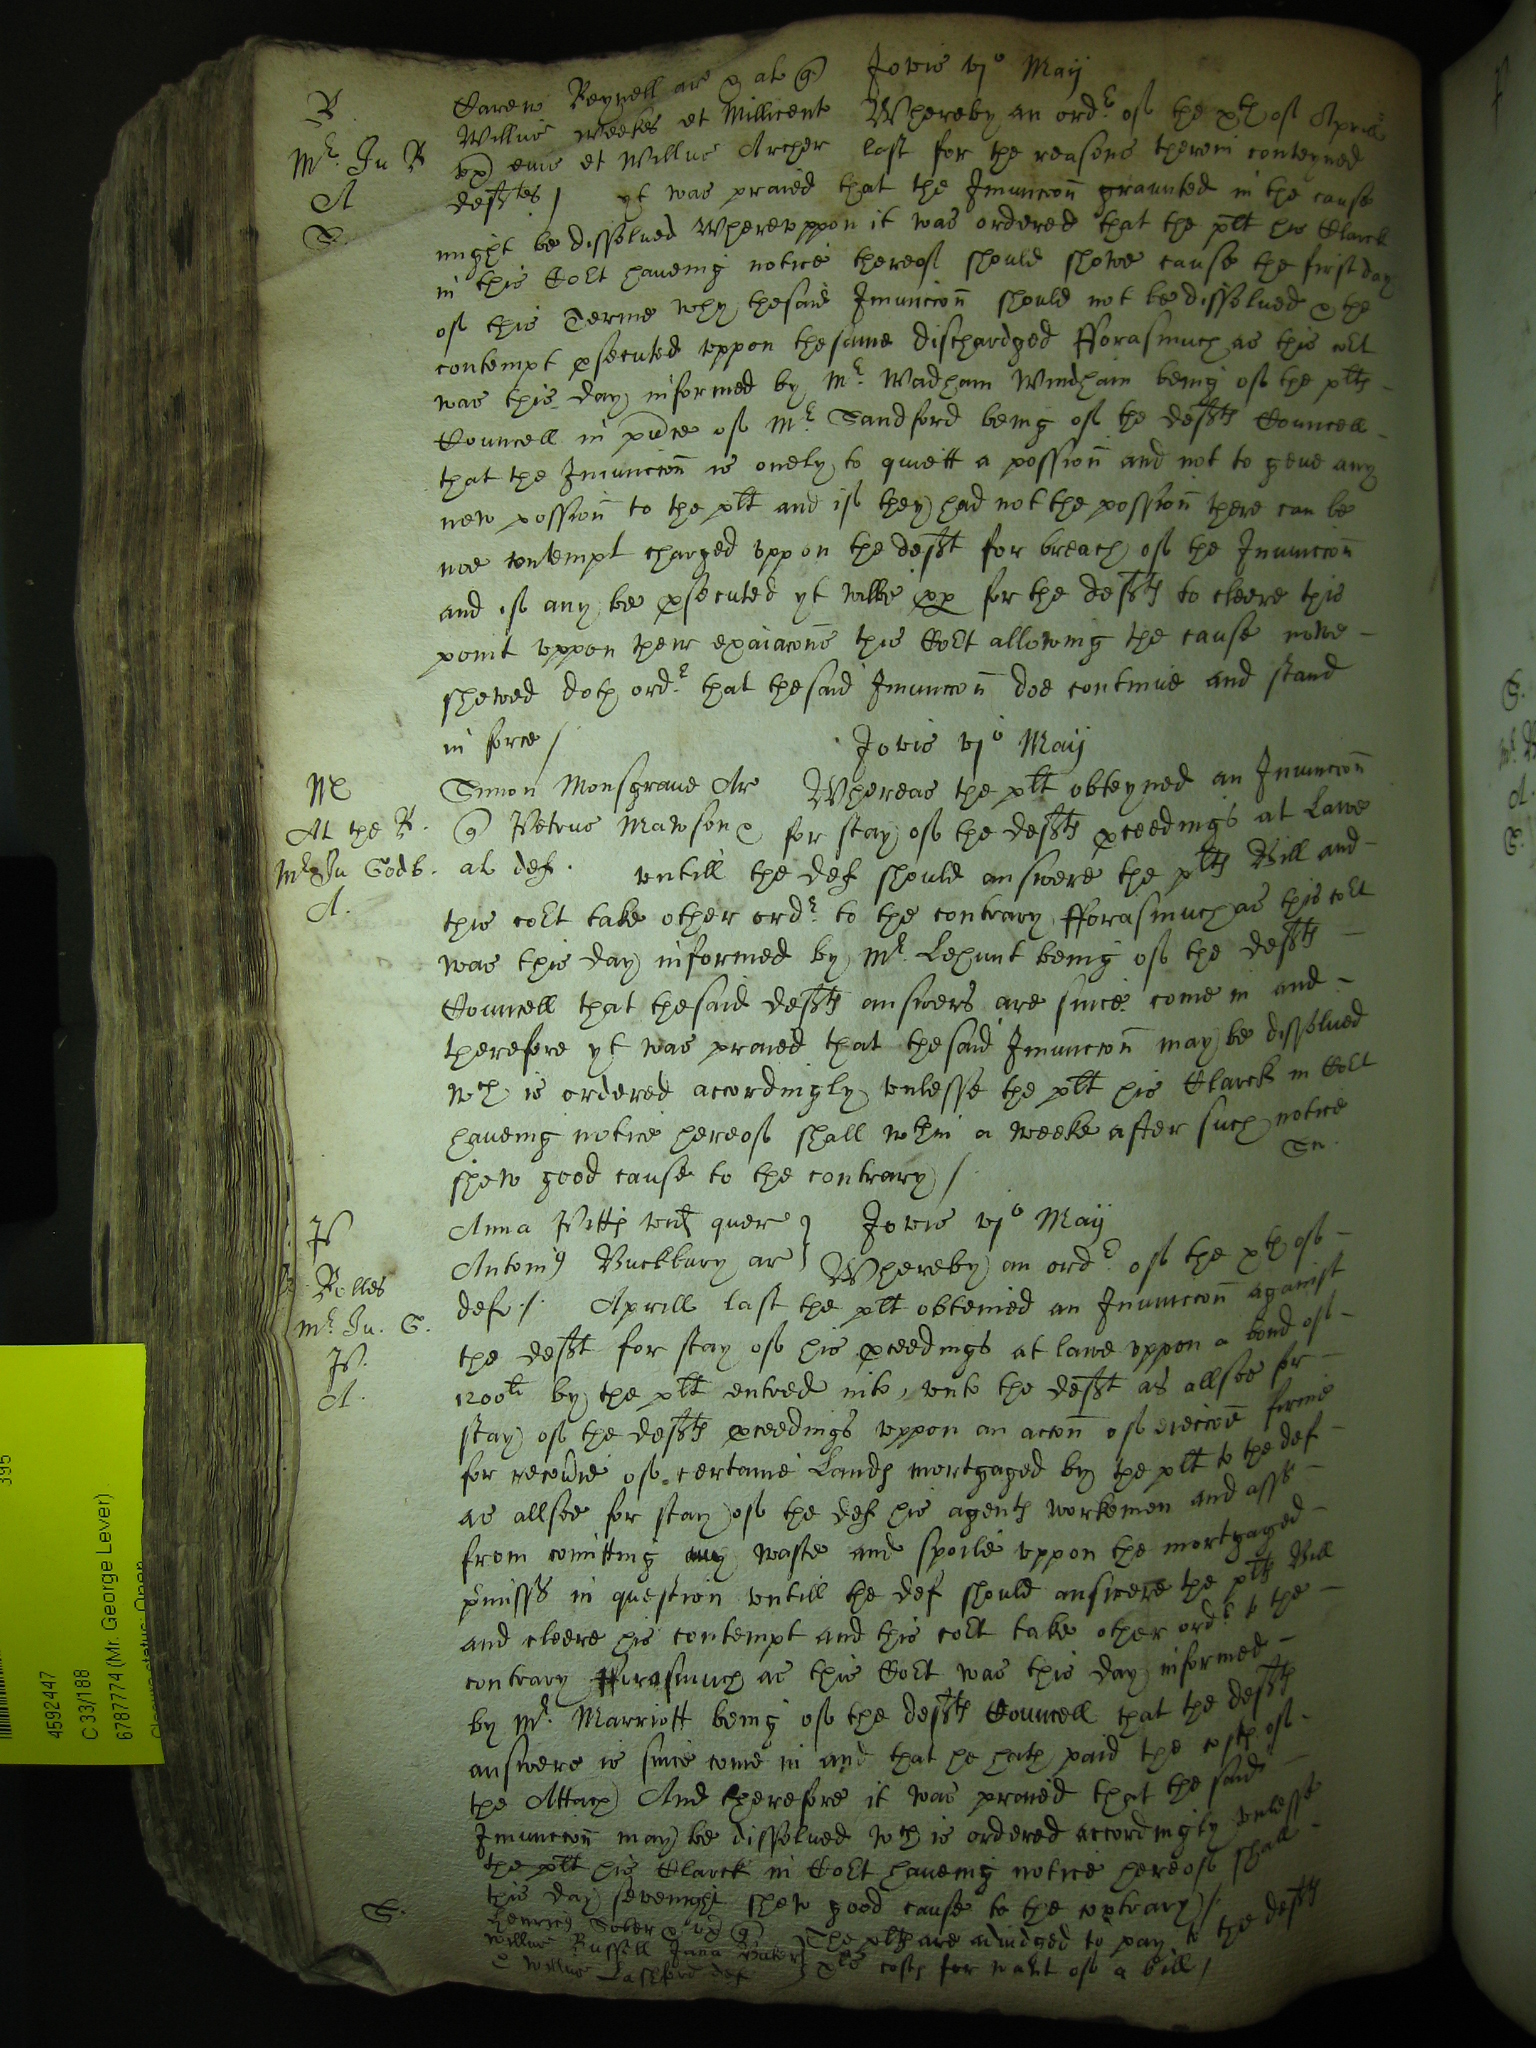 Jovis vjo Maij
R. Carew Reynell ar & al q
Willus Weekes et Millicent Whereby an ordr of the xth of Aprill
Mr. Ju R ux eius et Willus Archer last for the reasons therein conteyned
A defttes / yt was praied that the Iniunccon graunted in the cause
S. might be dissolved Whereuppon it was ordered that the plt his Clarck
in this Cort haveing notice thereof should showe cause the first day
of this Terme why thesaid Iniunccion should not be dissolved & the
contempt psecuted uppon thesame dischardged fforasmuch as this cort
was this day informed by Mr. Wadham Windham being of the plts -
Councell in pnce of Mr. Sandford being of the defts Councell -
that the Iniunccion is onely to quiett a possion and not to geve any
new possion to the plt and if they had not the possion there can be
noe contempt charged uppon the deft for breach of the Iniunccion
and if any be psecuted yt wilbe pp for the defts to cleere this
point uppon their exaiacons this Cort allowing the cause nowe -
shewed doth ordr that thesaid Iniunccon doe continue and stand
in force / Jovis vjo Maij
Simon Monsgrave Ar Whereas the plt obteyned an Iniunccion
At the R. q Petrus Mawson & for stay of the defts pceedings at Lawe
Mr Ju Godb. al def. untill the def should answere the plts Bill and -
A. this cort take other ordr to the contrary fforasmuch as this cort
was this day informed by Mr. Lehunt being of the defts -
Councell that thesaid defts answers are since come in and -
therefore yt was praied that thesaid Iniunccon may be dissolved
wch is ordered accordingly unlesse the plt his Clarck in Cort
haveing notice hereof shall wthin a weeke after such notice
shew good cause to the contrary / Sn.
P Anna Pitts vid quer } Jovis vjo Maij
Antonius Buckbury ar } Whereby an ordr of the xth of -
Rolles defs ./. Aprill last the plt obteined an Iniunccon against
Mr. Ju. G. the deft for stay of his pceedings at lawe uppon a bond of -
P. 1200li by the plt entred into, unto the deft as allsoe for -
A. stay of the defts pceedings uppon an accon of eieccione firme
for recovie of certaine Lands mortgaged by the plt to the def -
as allsoe for stay of the def his agents workemen and asss -
from comitting any waste and spoile uppon the mortgaged -
pmisss in question untill the def should answere the plts Bill
and cleere his contempt and this cort take other ordr to the -
contrary fforasmuch as this Cort was this day informed -
by Mr. Marriott being of the defts Councell that the defts
answere is since come in and that he hath paid the costs of -
the Attach And therefore it was praied that the said -
Iniunccon may be dissolved wch is ordered accordingly unlesse
the plt his Clarck in Cort haveing notice hereof shall -
this day sevenight shew good cause to the contrary /.
S. Henricus Sober & ux q } The plts are adiudged to pay to the defts
Willus Russell
& Willus Lashford def } costs for want of a bill /
395
4592447
C 33/188
6787774 (Mr. George Lever)
Closure status: Open